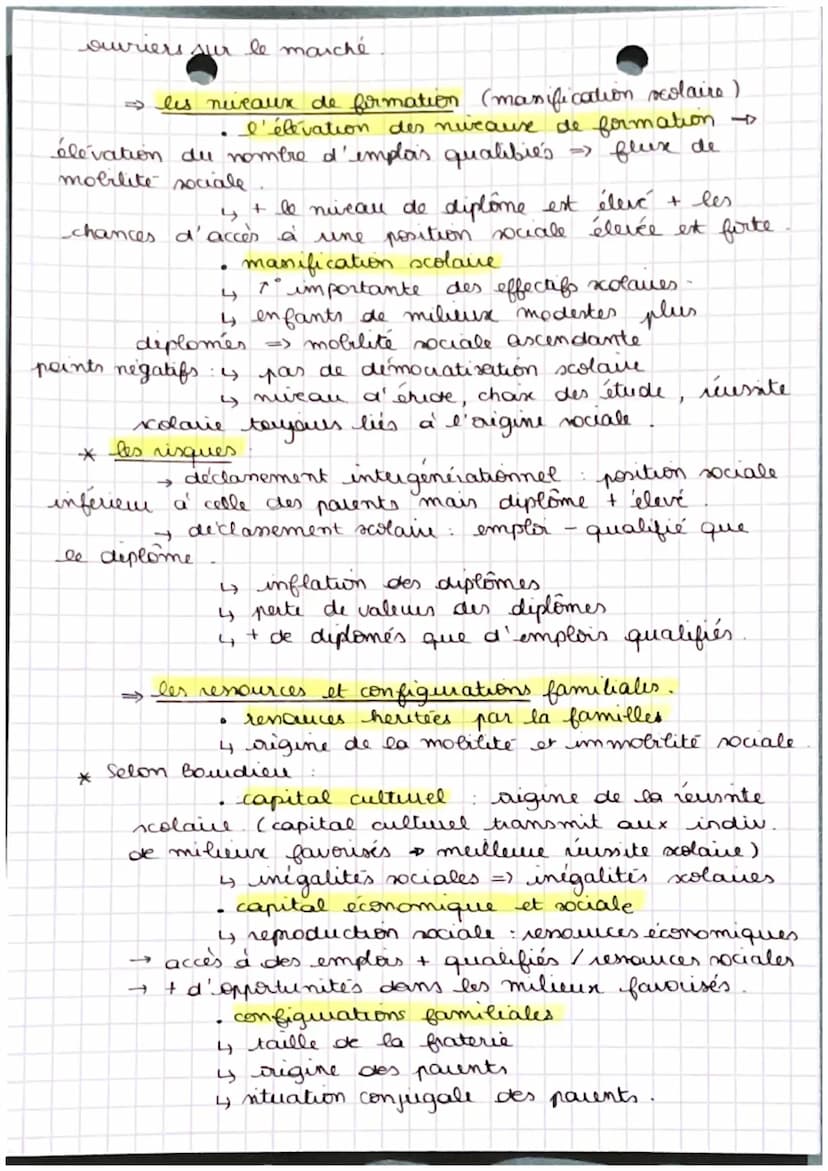 ouvriers sur le marché.
⇒ les niveaux de formation (massification scolaire)
• l'élévation des niveaux de formation →
élévation du nombre d'emplois qualifiés ⇒ flux de
mobilité sociale.
↳ + le niveau de diplôme est élevé + les
chances d'accès à une position sociale élevée est forte.
• massification scolaire
↳ ↑° importante des effectifs scolaires.
↳ enfants de milieux modestes plus
diplomés ⇒ mobilité sociale ascendante
points négatifs : ↳ pas de démocratisation scolaire
↳ niveau d'étude, choix des étude, réussite
scolaire toujours liés à l'origine sociale.
* les risques
→ déclassement intergénérationnel : position sociale
inférieur à celle des parents mais diplôme + élevé.
→ déclassement scolaire : emploi - qualifié que
le diplôme.
↳ inflation des diplômes
↳ perte de valeurs des diplômes
↳ + de diplomés que d'emplois qualifiés.
⇒ les ressources et configurations familiales.
• ressources heritées par la familles
↳ origine de la mobilité et immobilité sociale
* Selon Bourdieu :
• capital culturel : origine de la réussite
scolaire. (capital culturel transmit aux indiv.
de milieux favorisés → meilleure réussite scolaire)
↳ inégalités sociales ⇒ inégalités scolaires
• capital économique et sociale
↳ reproduction sociale : ressources économiques
→ accès à des emplois + qualifiés / ressources sociales
→ + d'opportunités dans les milieux favorisés.
• configurations familiales
↳ taille de la fraterie
↳ origine des parents
↳ situation conjugale des parents.